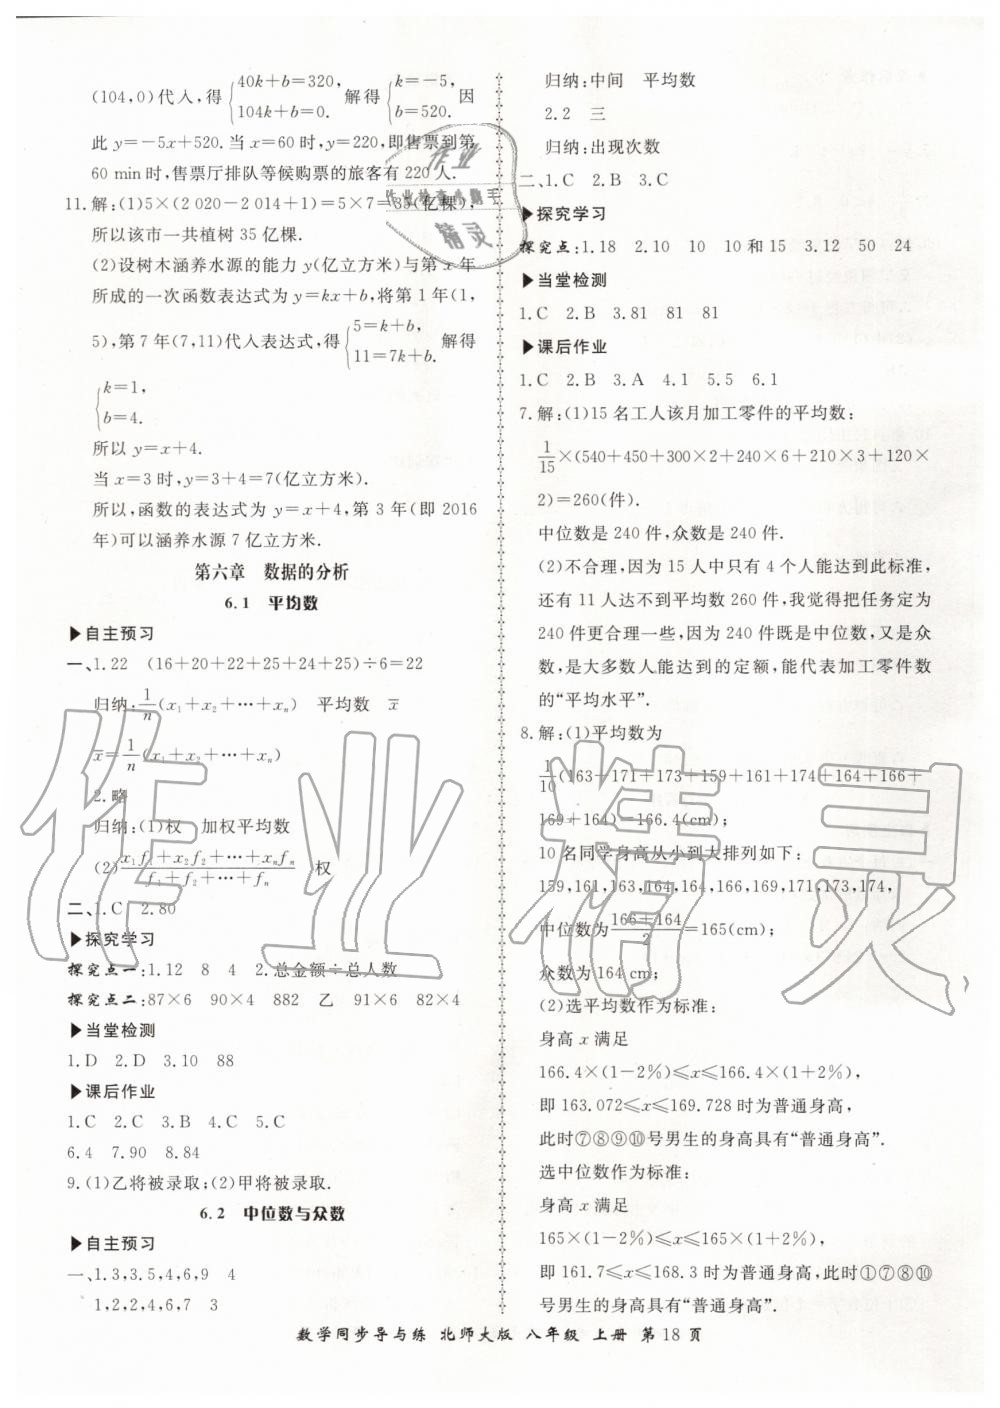 (104,0)代入,得{40k+b=320, 104k+b=0. 解得{k=-5, b=520. 因
此 y=-5x+520.当 x=60 时,y=220,即售票到第
60 min时,售票厅排队等候购票的旅客有 220 人.
11.解:(1)5×(2 020-2 014+1)=5×7=35(亿棵),
所以该市一共植树 35 亿棵.
(2)设树木涵养水源的能力 y(亿立方米)与第 x 年
所成的一次函数表达式为 y=kx+b,将第 1 年(1,
5),第 7 年(7,11)代入表达式,得{5=k+b, 11=7k+b. 解得
{k=1, b=4.
所以 y=x+4.
当 x=3 时,y=3+4=7(亿立方米).
所以,函数的表达式为 y=x+4,第 3 年(即 2016
年)可以涵养水源 7 亿立方米.
第六章 数据的分析
6.1 平均数
▶自主预习
一、1.22 (16+20+22+25+24+25)÷6=22
归纳:1/n(x₁+x₂+…+xₙ) 平均数 x̄
x̄=1/n(x₁+x₂+…+xₙ)
2.略
归纳:(1)权 加权平均数
(2)(x₁f₁+x₂f₂+…+xₙfₙ)/(f₁+f₂+…+fₙ) 权
二、1.C 2.80
▶探究学习
探究点一:1.12 8 4 2.总金额÷总人数
探究点二:87×6 90×4 882 乙 91×6 82×4
▶当堂检测
1.D 2.D 3.10 88
▶课后作业
1.C 2.C 3.C 4.C 5.C
6.4 7.90 8.84
9.(1)乙将被录取;(2)甲将被录取.
6.2 中位数与众数
▶自主预习
一、1.3,3.5,4,6,9 4
1,2,2,4,6,7 3
归纳:中间 平均数
2.2 三
归纳:出现次数
二、1.C 2.B 3.C
▶探究学习
探究点:1.18 2.10 10 10 和 15 3.12 50 24
▶当堂检测
1.C 2.B 3.81 81 81
▶课后作业
1.C 2.B 3.A 4.1 5.5 6.1
7.解:(1)15 名工人该月加工零件的平均数:
1/15×(540+450+300×2+240×6+210×3+120×
2)=260(件).
中位数是 240 件,众数是 240 件.
(2)不合理,因为 15 人中只有 4 个人能达到此标准,
还有 11 人达不到平均数 260 件,我觉得把任务定为
240 件更合理一些,因为 240 件既是中位数,又是众
数,是大多数人能达到的定额,能代表加工零件数
的“平均水平”.
8.解:(1)平均数为
1/10(163+171+173+159+161+174+164+166+
169+164)=166.4(cm);
10 名同学身高从小到大排列如下:
159,161,163,164,164,166,169,171,173,174,
中位数为(166+164)/2=165(cm);
众数为 164 cm;
(2)选平均数作为标准:
身高 x 满足
166.4×(1-2%)≤x≤166.4×(1+2%),
即 163.072≤x≤169.728 时为普通身高,
此时⑦⑧⑨⑩号男生的身高具有“普通身高”.
选中位数作为标准:
身高 x 满足
165×(1-2%)≤x≤165×(1+2%),
即 161.7≤x≤168.3 时为普通身高,此时①⑦⑧⑩
号男生的身高具有“普通身高”.
数学同步导与练 北师大版 八年级 上册 第 18 页
作业
作业检查小助手
精灵
作业精灵